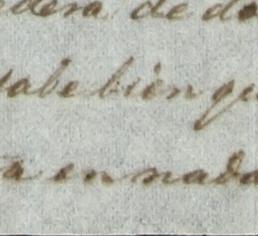 dera de do
sabe bien qu
a en nada